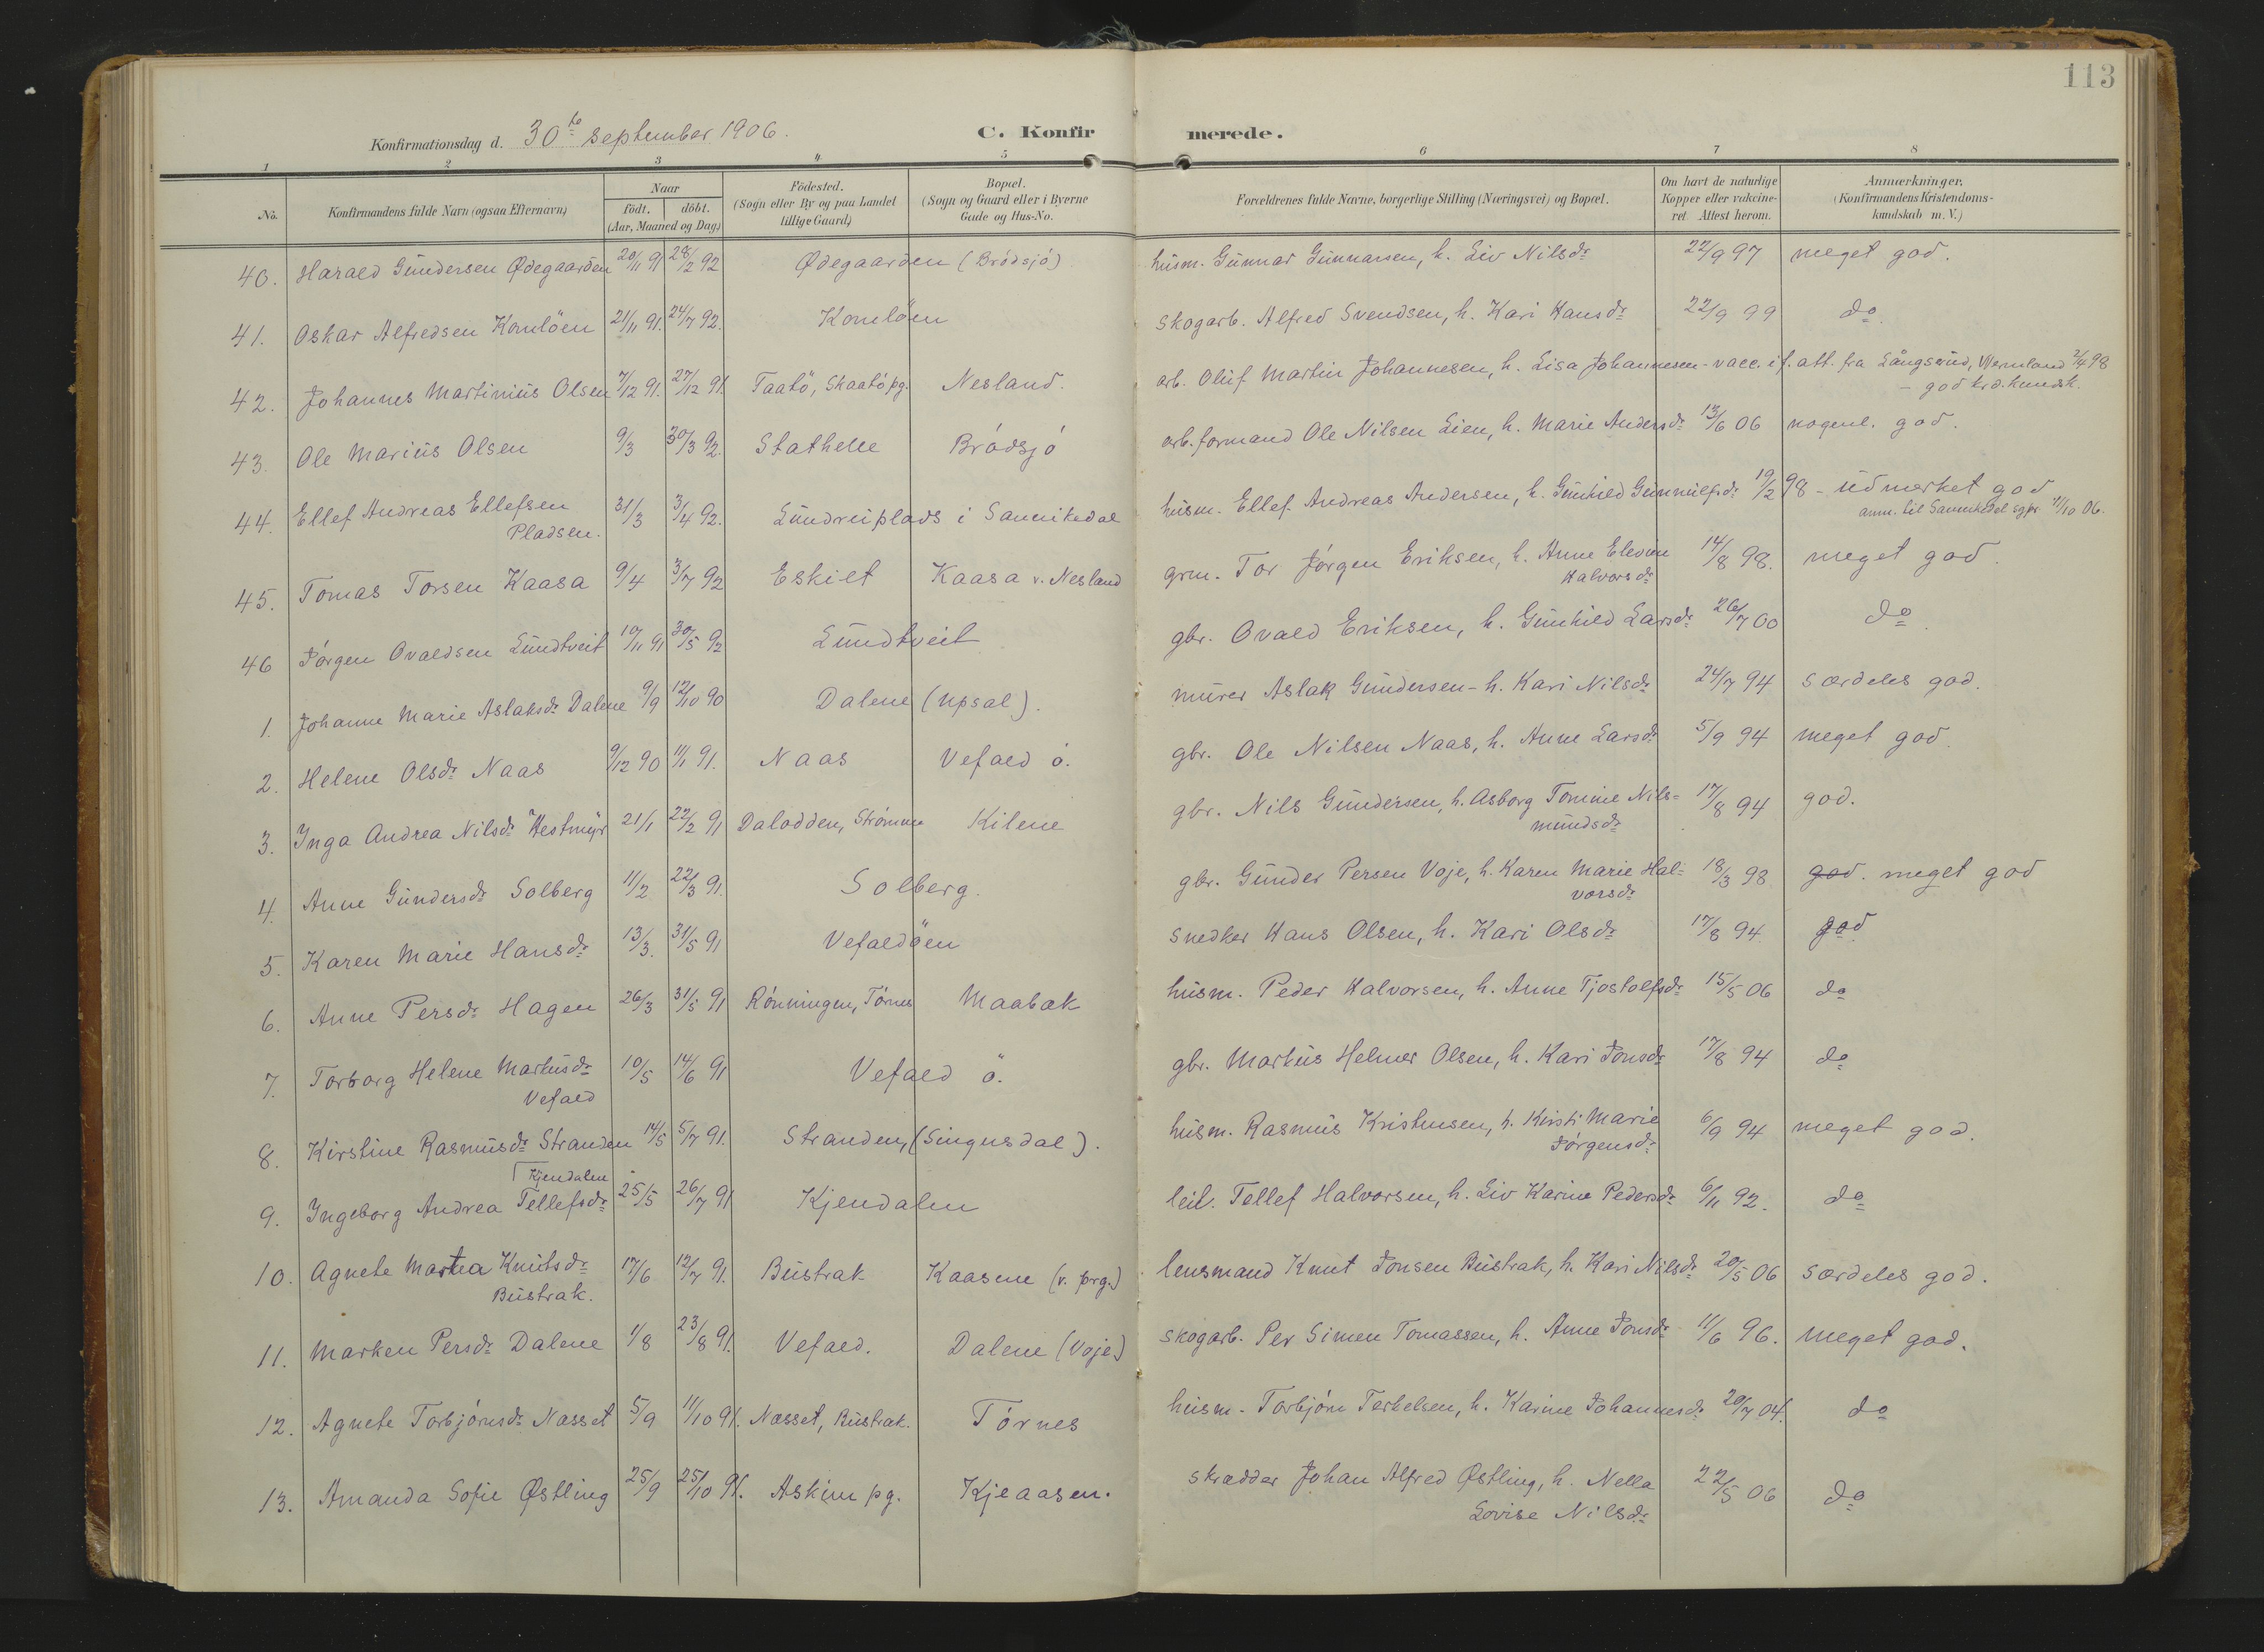 113
Konfirmationsdag d. 30te september 1906. C. Konfirmerede.
1 2 3 4 5 6 7 8
No. Konfirmandens fulde Navn (ogsaa Efternavn) Naar födt. döbt. (Aar, Maaned og Dag) Födested. (Sogn eller By og paa Landet tillige Gaard) Bopæl. (Sogn og Gaard eller i Byerne Gade og Hus-No. Forældrenes fulde Navne, borgerlige Stilling (Næringsvei) og Bopæl. Om havt de naturlige Kopper eller vakcineret. Attest herom. Anmærkninger. (Konfirmandens Kristendomskundskab m. V.)
40. Harald Gundersen Ødegaarden 20/11 91 28/2 92 Ødegaarden (Brödsjö) husm. Gunnar Gunnarsen, h. Liv Nilsdr 22/9 97 meget god.
41. Oskar Alfredsen Komlöen 21/11 91. 24/7 92. Komlöen skogarb. Alfred Svendsen, h. Kari Hansdr 22/9 99 do
42. Johannes Martinius Olsen 7/12 91. 27/12 91. Taatö, Skaatö pg. Nesland. arb. Oluf Martin Johannesen, h. Lisa Johannesen - vacc. if. att. fra Långserud, Wermland 2/4 98
- god krd. kundsk.
43. Ole Marius Olsen 9/3 30/3 92. Stathelle Brödsjö arb.formand Ole Nilsen Lien, h. Marie Andersdr 13/6 06 nogenl. god.
44. Ellef Andreas Ellefsen Pladsen. 31/3 3/4 92. Lundreiplads i Sannikedal husm. Ellef Andreas Andersen, h. Gunhild Gunnulfsdr 19/2 98 - udmerket god
anm. til Sannikedal sgpr 11/10 06.
45. Tomas Torsen Kaasa 9/4 3/7 92 Eskilt Kaasa v. Nesland grm. Tor Jörgen Eriksen, h. Anne Elevine Halvorsdr 14/8 98. meget god.
46 Jörgen Ovaldsen Lundtveit 10/11 91 30/5 92 Lundtveit gbr. Ovald Eriksen, h. Gunhild Larsdr 26/7 00 do
1. Johanne Marie Aslaksdr Dalene 9/9 12/10 90 Dalene (Upsal). murer Aslak Gundersen - h. Kari Nilsdr 24/7 94 særdeles god.
2. Helene Olsdr Naas 9/12 90 11/1 91. Naas Vefald ö. gbr. Ole Nilsen Naas, h. Anne Larsdr 5/9 94 meget god.
3. Inga Andrea Nilsdr Vestmyr 21/1 22/2 91 Dalodden, Strömme Kilene gbr. Nils Gundersen, h. Asborg Tomine Nils=mundsdr 17/8 94 god.
4. Anne Gundersdr Solberg 11/2 22/3 91. Solberg. gbr. Gunder Persen Voje, h. Karen Marie Hal=vorsdr 18/3 98 god. meget god
5. Karen Marie Hansdr 13/3. 31/5 91 Vefaldöen snedker Hans Olsen, h. Kari Olsdr 17/8 94 god
6. Anne Persdr Hagen 26/3 31/5 91 Rönningen, Törnes Maabæk husm. Peder Halvorsen, h. Anne Tjostolfsdr 15/5 06 do
7. Torborg Helene Markusdr Vefald 10/5 14/6 91 Vefald ö. gbr. Markus Helmer Olsen, h. Kari Jonsdr 17/8 94 do
8. Kirstine Rasmusdr Stranden 14/5 5/7 91. Stranden, (Singusdal). husm. Rasmus Kristensen, h. Kirsti Marie Jörgensdr 6/9 94 meget god.
9. Ingeborg Andrea Tellefsdr Kjendalen 25/5 26/7 91 Kjendalen leil. Tellef Halvorsen, h. Liv Karine Pedersdr 6/11 92. do
10. Agnete Martea Knutsdr Bustrak. 17/6 12/7 91. Bustrak Kaasene (v. prg.) lensmand Knut Jonsen Bustrak, h. Kari Nilsdr 20/5 06 særdeles god.
11. Marken Persdr Dalene 1/8 23/8 91. Vefald. Dalene (Voje) skogarb. Per Simen Tomassen, h. Anne Jonsdr 11/6 96. meget god.
12. Agnete Torbjörnsdr Næsset 5/9 11/10 91. Næsset, Bustrak. Törnes husm. Torbjörn Terkelsen, h. Karine Johannesdr 20/7 04. do
13. Amanda Sofie Østling 25/9 25/10 91. Askim pg. Kjeaasen. skrædder Johan Alfred Østling, h. Nella Lovise Nilsdr 22/5 06 do